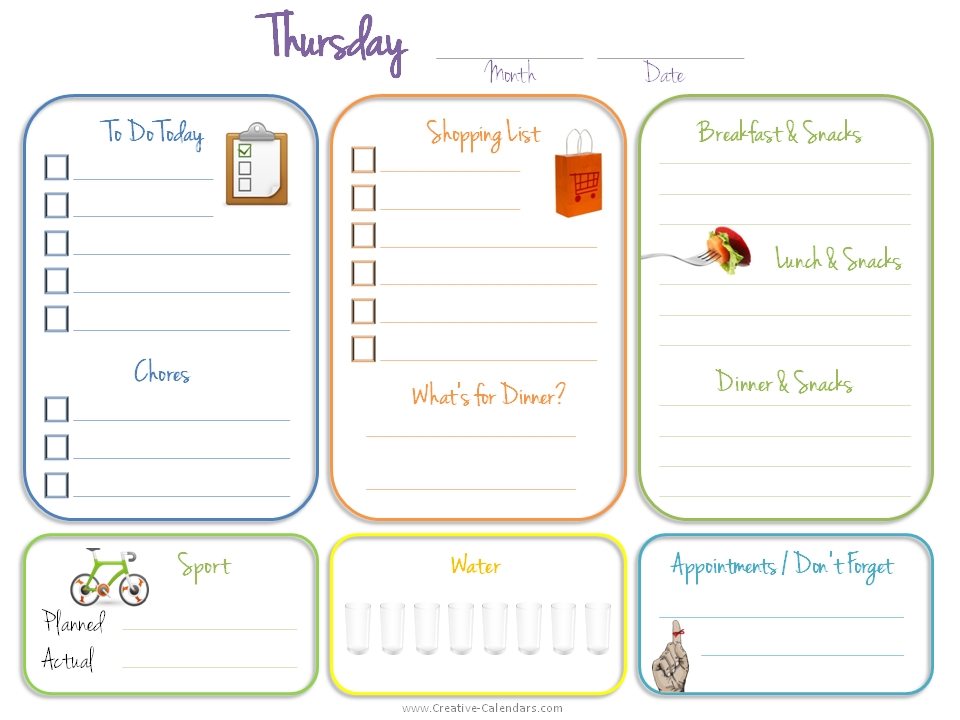 Thursday
Month Date
To Do Today
Chores
Shopping List
What's for Dinner?
Breakfast & Snacks
Lunch & Snacks
Dinner & Snacks
Sport
Planned
Actual
Water
Appointments / Don't Forget
www.Creative-Calendars.com